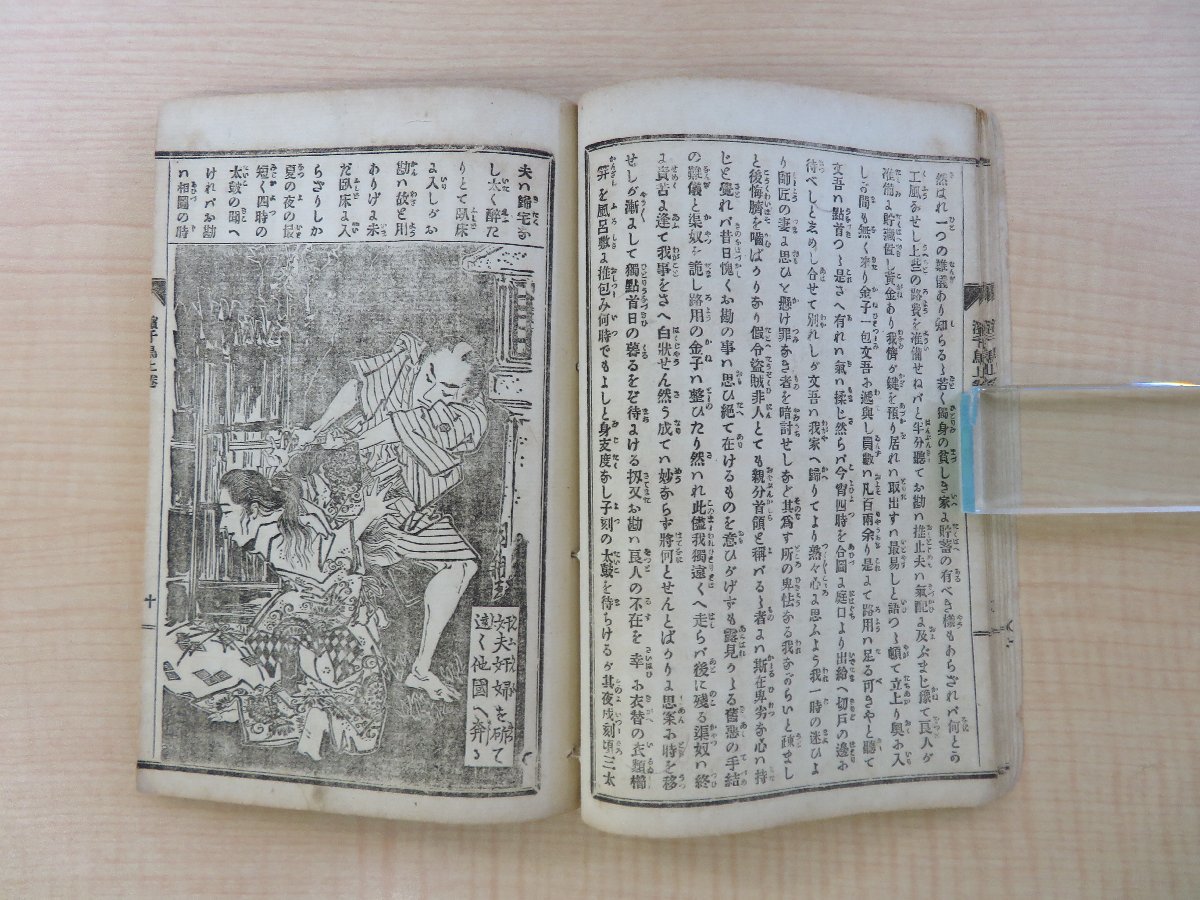 然ばれ一つの難儀あり知らるゝ若く獨身の貧しき家よ貯蓄の有べき様もあらざれバ何との
工風かせし上些の路費を准備せねバと半分聽てお勘ハ推止夫ハ氣配よ及ぶまじ豫て良人が
准備よ貯蓄置し黄金あり我儕が鍵を預り居れハ取出すハ最易しと語つゝ頓て立上り奥お入
しが間も無く來り金子一包文吾お遞與し員數ハ凡百兩余り是よて路用ハ足る可きやと聽て
文吾ハ點首つゝ是さへ有れハ氣ハ揉じ然らバ今宵四時を合圖よ庭口より出給へ切戸の邊お
待べしと志めし合せて別れしが文吾ハ我家へ歸りてより熟々心よ思ふよう我一時の迷ひよ
り師匠の妻よ思ひと懸け罪なき者を暗討せしなど其爲す所の卑怯なる我ながらいと疎まし
と後悔臍を噛ばかりなり假令盗賊非人とても親分首領と稱バるゝ者ハ斯在卑劣な心ハ持
じと覺れバ昔日愧くお勘の事ハ思ひ絶て在けるものを意ひがけずも露見かゝる舊惡の手結
の難儀と渠奴を詭し路用の金子ハ整ひたり然ハれ此儘我獨遠くへ走らバ後に殘る渠奴ハ終
よ責苦よ逢て我事をさへ白狀せん然う成てハ妙ならず將何とせんとばかりよ思案お時を移
せしが漸よして獨點首日の暮るをぞ待よける扨又お勘ハ良人の不在を幸ふ衣替の衣類櫛
笄を風呂敷よ推包み何時でもよしと身支度なし子刻の太鼓を待ちけるが其夜戌刻頃三太
夫ハ歸宅な
し太く醉た
りとて臥床
よ入しがお
勘ハ故と用
ありげよ未
だ臥床よ入
らざりしか
夏の夜の最
短く四時の
太鼓の聞へ
けれバお勘
ハ相圖の時
奸夫奸婦を斫て
遠く他國へ奔る
濱千鳥上巻
十